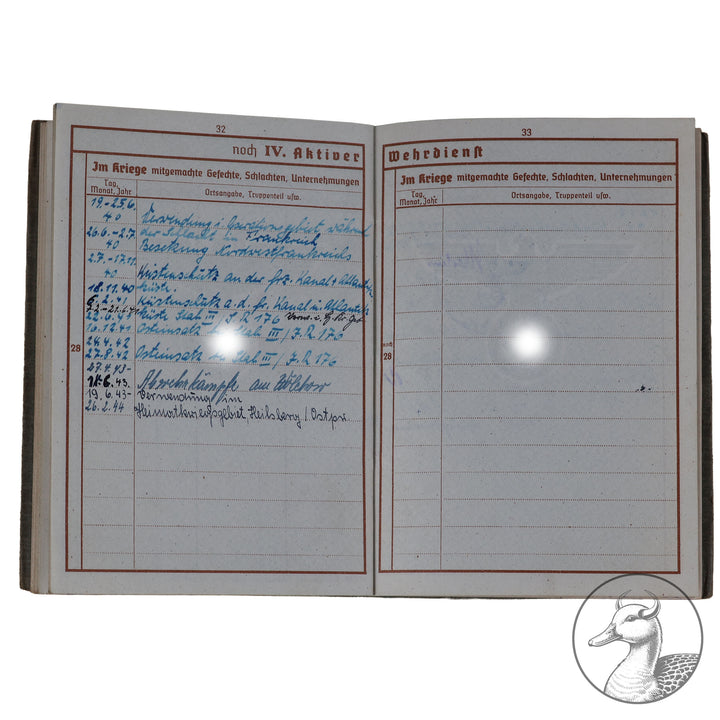 32
noch IV. Aktiver
Im Kriege mitgemachte Gefechte, Schlachten, Unternehmungen
Tag, Monat, Jahr
Ortsangabe, Truppenteil usw.
19.-25.6.
40 Verwendung i. Operationsgebiet während
26.6.-2.7. der Schlacht in Frankreich
40 Besetzung Nordwestfrankreichs
2.7.-17.11.
40 Küstenschutz an der frz. Kanal u. Atlantik
18.11.40 küste.
Küstenschutz a. d. fr. Kanal u. Atlantik
küste Stab III/J.R. 176
16.12.41 Osteinsatz Stab III/J.R. 176
24.4.42
27.8.42 Osteinsatz bei Stab III/J.R. 176
27.4.43-
6.43. Abwehrkämpfe am
19.6.43- Verwendung im
26.2.44 Heimatkriegsgebiet, Heilsberg/Ostpr.
28
33
Wehrdienst
Im Kriege mitgemachte Gefechte, Schlachten, Unternehmungen
Tag, Monat, Jahr
Ortsangabe, Truppenteil usw.
28